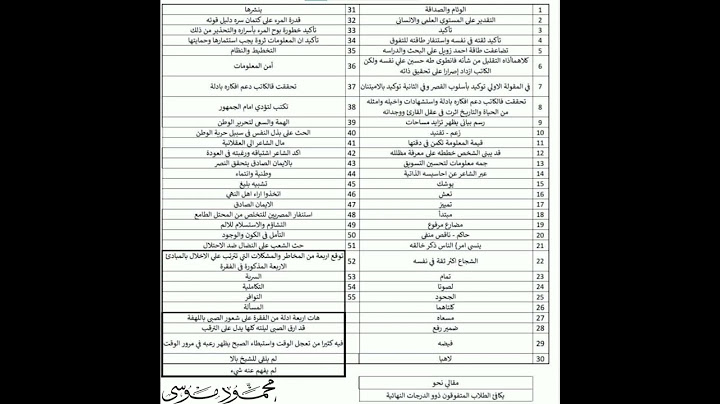 الوئام والصداقة 1
التقدير على المستوي العلمى والانسانى 2
تأكيد 3
تأكيد ثقته في نفسه واستنفار طاقته للتفوق 4
تضاعفت طاقة احمد زويل علي البحث والدراسه 5
كلاهماأذاه التقليل من شأنه فانطوى طه حسين علي نفسه ولكن
الكاتب ازداد إصرارا على تحقيق ذاته 6
في المقولة الاولي توكيد بأسلوب القصر وفي الثانية توكيد بالامتنان 7
تحققت فالكاتب دعم افكاره بادلة واستشهادات واخيله وامثله
من الحياة والتاريخ اثرت في عقل القارئ ووجدانه 8
رسم بيانى يظهر تزايد مساحات 9
زعم - تفنيد 10
قيمة المعلومة تكمن في دقتها 11
قد يبنى الشخص خططه على معرفة مظلله 12
جمه معلومات لتحسين التسويق 13
عبر الشاعر عن احاسيسه الذاتية 14
يوشك 15
تعش 16
تمييز 17
مبتدأ 18
مضارع مرفوع 19
حاكم - ناقص منفى 20
ينسى امرؤ الناس ذكر خالقه 21
الشجاع اكثر ثقة في نفسه 22
تمام 23
لصوتا 24
الجحود 25
كلتاهما 26
مسعاه 27
ضمير رفع 28
فيضه 29
لاهيا 30
مقالي نحو
يكافئ الطلاب المتفوقون ذوو الدرجات النهائية
ينشرها 31
قدرة المرء على كتمان سره دليل قوته 32
تأكيد خطورة بوح المرء بأسراره والتحذير من ذلك 33
تأكيد ان المعلومات ثروة يجب استثمارها وحمايتها 34
التخطيط والنظام 35
أمن المعلومات 36
تحققت فالكاتب دعم افكاره بادلة 37
تكتب لتؤدي امام الجمهور 38
الهمة والسعى لتحرير الوطن 39
الحث على بذل النفس في سبيل حرية الوطن 40
مال الشاعر الي العقلانية 41
اكد الشاعر اشتياقه ورغبته في العودة 42
بالايمان الصادق يتحقق النصر 43
وطنية وانتماء 44
تشبيه بليغ 45
اتخذوا اراء اهل النهي 46
الايمان الصادق 47
استنفار المصريين للتخلص من المحتل الطامع 48
التشاؤم والاستسلام للألم 49
التأمل في الكون والوجود 50
حث الشعب على النضال ضد الاحتلال 51
توقع اربعة من المخاطر والمشكلات التي تترتب علي الاخلال بالمبادئ
الاربعة المذكورة فى الفقرة 52
السرية 53
التكاملية 54
التوافر 55
المسألة
هات اربعة ادلة من الفقرة على شعور الصبى باللهفة
قد ارق الصبى ليلته كلها يدل على الترقب
فيه كثيرا من تعجل الوقت واستبطاء الصبح يظهر رغبه في مرور الوقت
لم يلقى للشيخ بالا
لم يفهم عنه شيء
محمود موسى